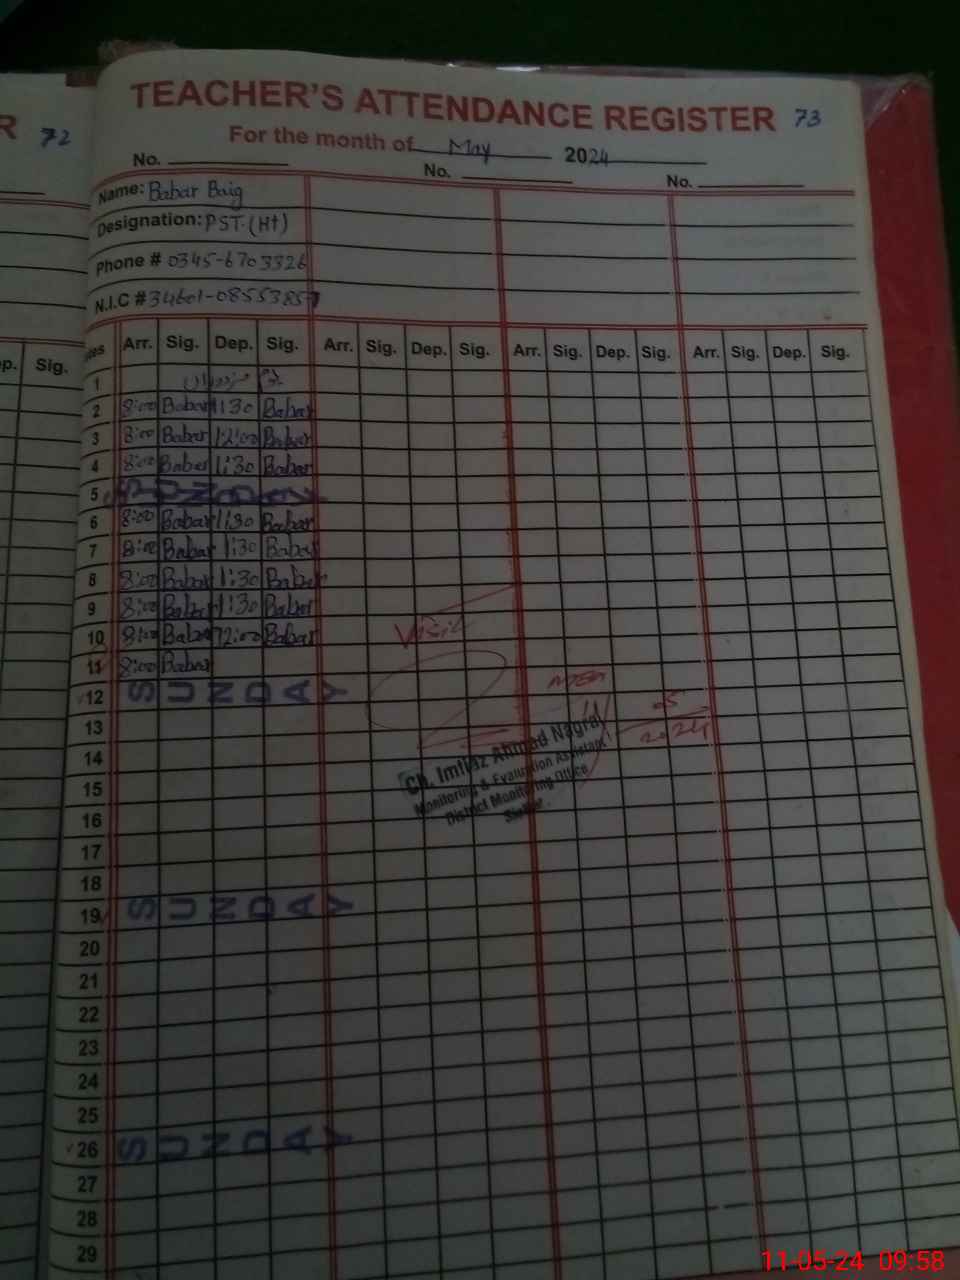 R 72
TEACHER'S ATTENDANCE REGISTER 73
For the month of May 2024
No. No. No.
Name: Babar Baig
Designation: PST.(Ht)
Phone # 0345-6703326
N.I.C # 34601-0855385-7
p. Sig. Arr. Sig. Dep. Sig. Arr. Sig. Dep. Sig. Arr. Sig. Dep. Sig. Arr. Sig. Dep. Sig.
1
2 8:00 Babar 1:30 Babar
3 8:00 Babar 12:00 Babar
4 8:00 Babar 1:30 Babar
5 SUNDAY
6 8:00 Babar 1:30 Babar
7 8:00 Babar 1:30 Babar
8 8:00 Babar 1:30 Babar
9 8:00 Babar 1:30 Babar
10 8:00 Babar 12:00 Babar
Visit
11 8:00 Babar
12 SUNDAY
MEA
05
2024
13
Ch. Imtiaz Ahmad Nagra
Monitoring & Evaluation Assistant
District Monitoring Office
Sialkot.
14
15
16
17
18
19 SUNDAY
20
21
22
23
24
25
26 SUNDAY
27
28
29
11-05-24 09:58